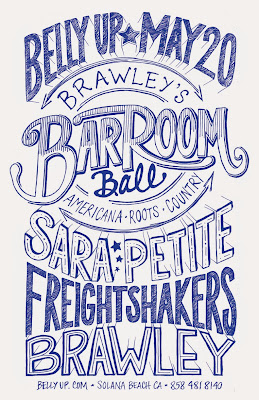 BELLY UP ★ MAY 20
BRAWLEY'S
BARROOM
BALL
AMERICANA • ROOTS • COUNTRY
SARA PETITE
FREIGHTSHAKERS
BRAWLEY
BELLYUP.COM • SOLANA BEACH CA • 858 481 8140